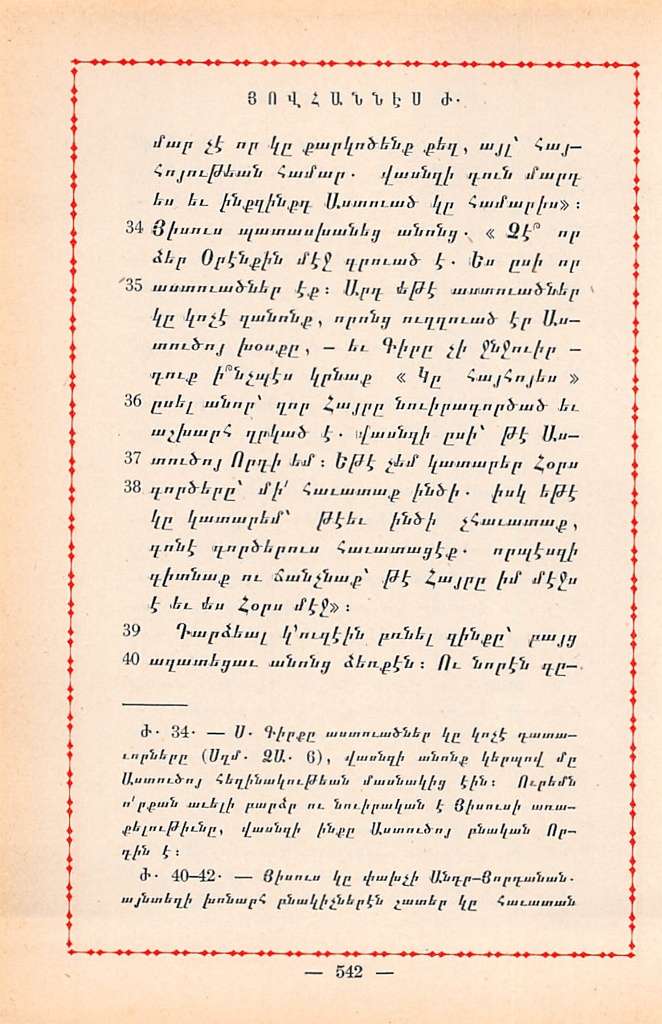 ՅՈՎՀԱՆՆԷՍ Ժ.
մար չէ որ կը քարկոծենք քեզ, այլ՝ հայ—
հոյութեան համար. վասնզի դուն մարդ
ես եւ ինքզինքդ Աստուած կը համարիս»:
34 Յիսուս պատասխանեց անոնց. « Չէ՞ որ
ձեր Օրէնքին մէջ գրուած է. Ես ըսի որ
35 աստուածներ էք: Արդ եթէ աստուածներ
կը կոչէ զանոնք, որոնց ուղղուած էր Աս—
տուծոյ խօսքը, — եւ Գիրը չի ջնջուիր —
դուք ի՞նչպէս կրնաք « Կը հայհոյես »
36 ըսել անոր՝ զոր Հայրը նուիրագործած եւ
աշխարհ ղրկած է. վասնզի ըսի՝ թէ Աս—
37 տուծոյ Որդի եմ: Եթէ չեմ կատարեր Հօրս
38 գործերը՝ մի՛ հաւատաք ինծի. իսկ եթէ
կը կատարեմ՝ թէեւ ինծի չհաւատաք,
գոնէ գործերուս հաւատացէք. որպէսզի
գիտնաք ու ճանչնաք՝ թէ Հայրը իմ մէջս
է եւ ես Հօրս մէջ»:
39 Դարձեալ կ՚ուզէին բռնել զինքը՝ բայց
40 ազատեցաւ անոնց ձեռքէն: Ու նորէն գը—
Ժ. 34. — Ս. Գիրքը աստուածներ կը կոչէ դատա—
ւորները (Սղմ. ՁԱ. 6), վասնզի անոնք կերպով մը
Աստուծոյ հեղինակութեան մասնակից էին: Ուրեմն
ո՛րքան աւելի բարձր ու նուիրական է Յիսուսի առա—
քելութիւնը, վասնզի ինքը Աստուծոյ բնական Որ—
դին է:
Ժ. 40–42. — Յիսուս կը փախչի Անդր—Յորդանան.
այնտեղի խոնարհ բնակիչներէն շատեր կը հաւատան
— 542 —